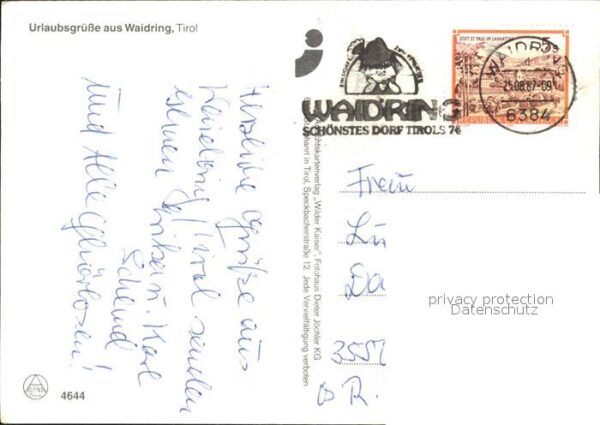 Urlaubsgrüße aus Waidring, Tirol
Herzliche Grüße aus
Waidring/Tirol senden
Karl
Schend
und alle Gehörlosen!
4644
WAIDRING
SCHÖNSTES DORF TIROLS 74
STIFT ST. PAUL IM LAVANTTAL
5 S
WAIDRING
25.08.87-09
6384
Ansichtskartenverlag „Wilder Kaiser“, Fotohaus Dieter Jöchler KG
Johann in Tirol, Speckbacherstraße 12 Jede Vervielfältigung verboten
Da
privacy protection
Datenschutz